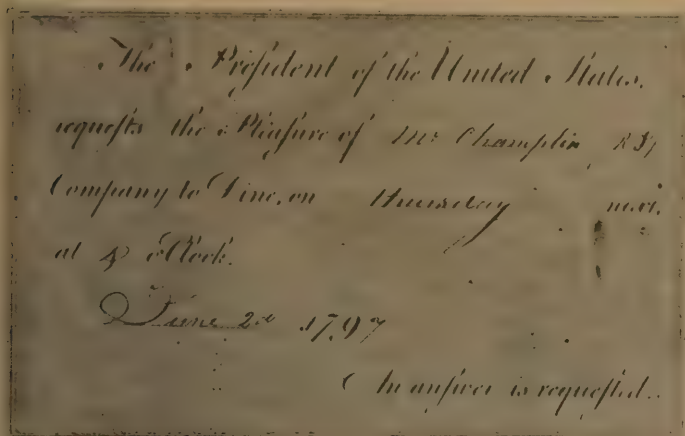 The President of the United States.
requeſts the Pleaſure of Mr Champlin
Company to Dine, on Thursday next.
at 4 oClock.
June 2d 1797
An anſwer is requeſted.